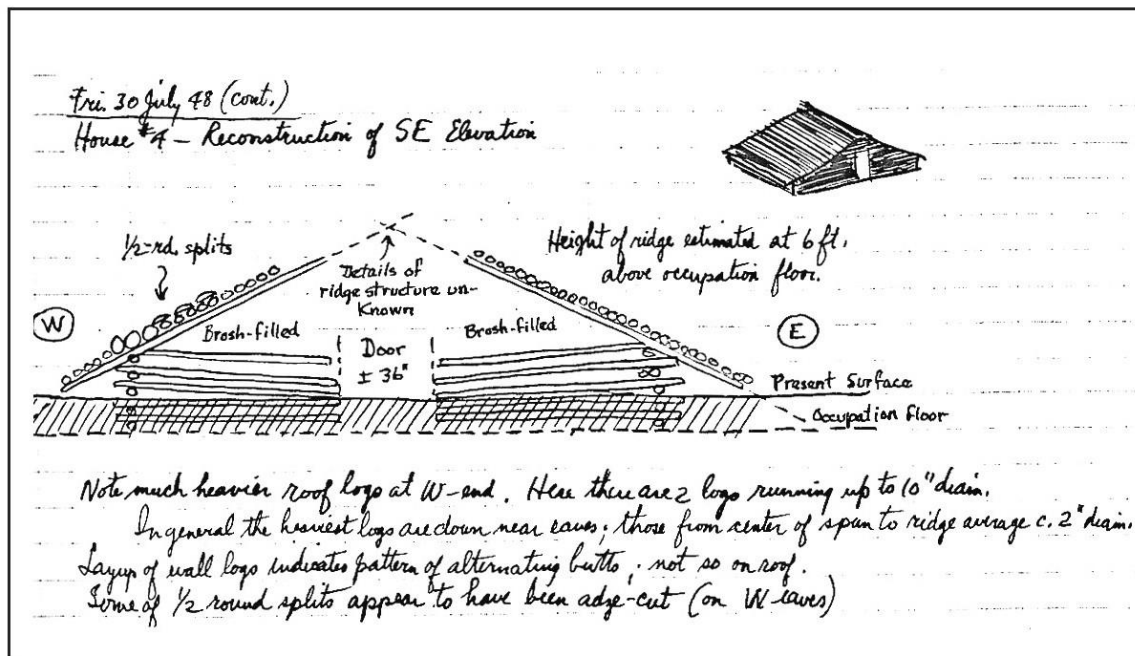 Fri. 30 July 48 (cont.)
House #4 – Reconstruction of SE Elevation
1/2-rd. splits
Details of
ridge structure un-
known
Height of ridge estimated at 6 ft.
above occupation floor.
W
Brush-filled
Door
± 36"
Brush-filled
E
Present Surface
Occupation floor
Note much heavier roof logs at W-end. Here there are 2 logs running up to 10" diam.
In general the heaviest logs are down near eaves; those from center of span to ridge average c. 2" diam.
Layup of wall logs indicates pattern of alternating butts; not so on roof.
Some of 1/2 round splits appear to have been adge-cut (on W eaves)